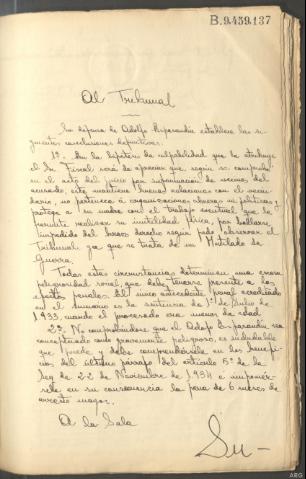 B.9.459.137
Al Tribunal
La defensa de Adolfo Esparandiu establece las si-
guientes conclusiones definitivas.
1ª. En la hipótesis de culpabilidad que le atribuye
el Sr. Fiscal será de apreciar que según se comprobó
en el acto del juicio por información de vecinos del
acusado, este mantiene buenas relaciones con el vecin-
dario, no pertenece a organizaciones obreras ni políticas y
protege a su madre con el trabajo eventual que le
permite realizar su inutilidad física, por hallarse
impedido del brazo derecho según pudo observar el
Tribunal ya que se trata de un Mutilado de
Guerra.
Todas estas circunstancias determinan una escasa
peligrosidad social, que debe tenerse presente a los
efectos penales. El único antecedente penal acreditado
en el sumario es de sentencia de 1º de Julio de
1.933, cuando el procesado era menor de edad
2ª. No comprobándose que el Adolfo Esparandiu sea
conceptuado como gravemente peligroso, es indudable
que puede y debe comprendérsele en los benefi-
cios del último párrafo del artículo 5º de la
ley de 22 de Noviembre de 1.934 e imponér-
sele en su consecuencia la pena de 6 meses de
arresto mayor.
A la Sala
ARG